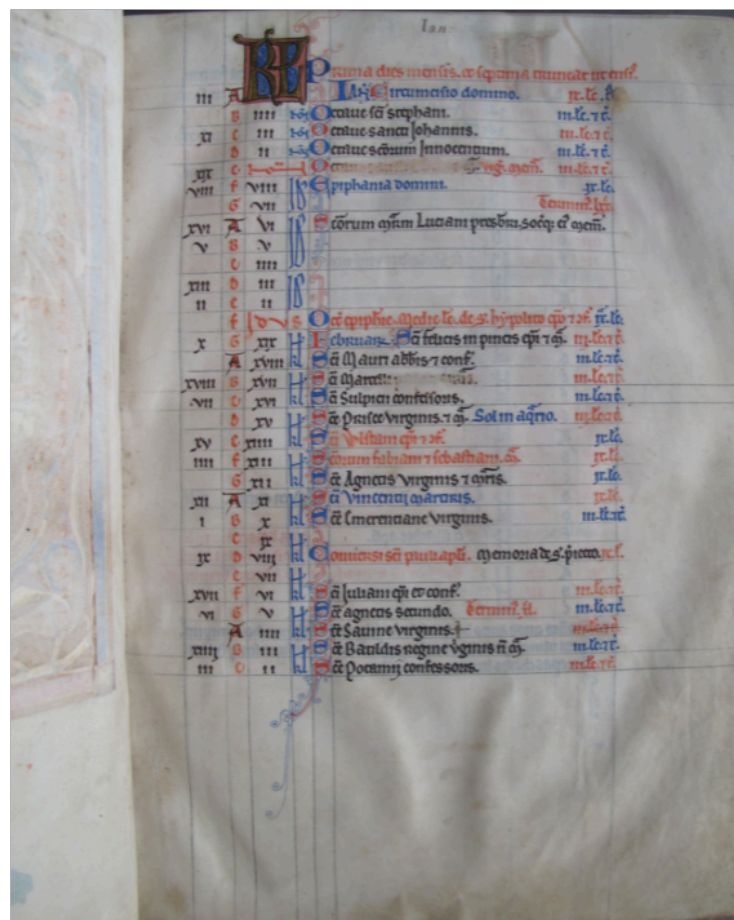 Ian
KL Prima dies mensis. et septima truncat ut ensis.
iii A Ian. Circumcisio domino. ix. lc.
B iiii N Octaue sci stephani. iii. lc. 7 c.
xi C iii N Octaue sancti Johannis. iii. lc. 7 c.
D ii N Octaue scorum Innocentium. iii. lc. 7 c.
xix virg. mem. iii. lc. 7 c.
viii F viii Id Epiphania domini. ix. lc.
G vii Terminus lxx.
xvi A vi Id Scorum mrm Luciani presbri. socioq; ei mem.
v B v Id
C iiii Id
xiii D iii Id
ii E ii Id
F Idus Oct epiphie. Medie lc. de s. hypolito epo 7 of. ix. lc.
x G xix kl Februarii. Sci felicis in pincis epi 7 m. iii. lc. 7 c.
A xviii kl Sci Mauri abbis 7 conf. iii. lc. 7 c.
xviii B xvii kl Sci Marcelli iii. lc. 7 c.
vii C xvi kl Sci Sulpicii confessoris. iii. lc. 7 c.
D xv kl Sce Prisce virginis. 7 m. Sol in aqrio. iii. lc. 7 c.
xv E xiiii kl Sci Wlstani epi 7 of. ix. lc.
iiii F xiii kl Scorum fabiani 7 sebastiani. m. ix. lc.
G xii kl Sce Agnetis virginis 7 mris. ix. lc.
xii A xi kl Sci Vincentii martiris. ix. lc.
i B x kl Sce Emerentiane virginis. iii. lc. 7 c.
C ix kl
ix D viii kl Conuersi sci pauli apli. memoria de s. petro. ix. l.
E vii kl
xvii F vi kl Sci Iuliani epi et conf. iii. lc. 7 c.
vi G v kl Sce agnetis secundo. Terminus iii. lc. 7 c.
A iiii kl Sce Sauine virginis. iii. lc. 7 c.
xiiii B iii kl Sce Batildis regine virginis n m. iii. lc. 7 c.
iii C ii kl confessoris. iii. lc. 7 c.